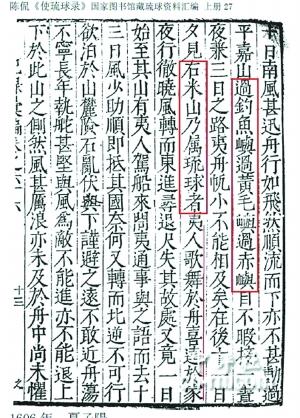 陈侃《使琉球录》国家图书馆藏琉球资料汇编 上册27
十日南風甚迅舟行如飛然順流而下亦不甚動過
平嘉山過釣魚嶼過黃毛嶼過赤嶼目不暇接一晝
夜兼三日之路夷舟帆小不能相及矣在後十一日
夕見古米山乃属琉球者夷人歌舞於舟喜達於家
夜行徹曉風轉而東進尋退尺失其故處又竟一日
始至其山有夷人駕船來問夷通事與之語而去十
三日風少助順即抵其國奈何又轉而北逆不可行
欲泊於山麓險石亂伏於下謹避之遠不敢近舟蕩
不寧長年執舵甚堅與風為敵不能進亦不能退上
下於此山之側然風甚厲浪亦未及於舟中尚未懼
十三
1606年 夏子陽